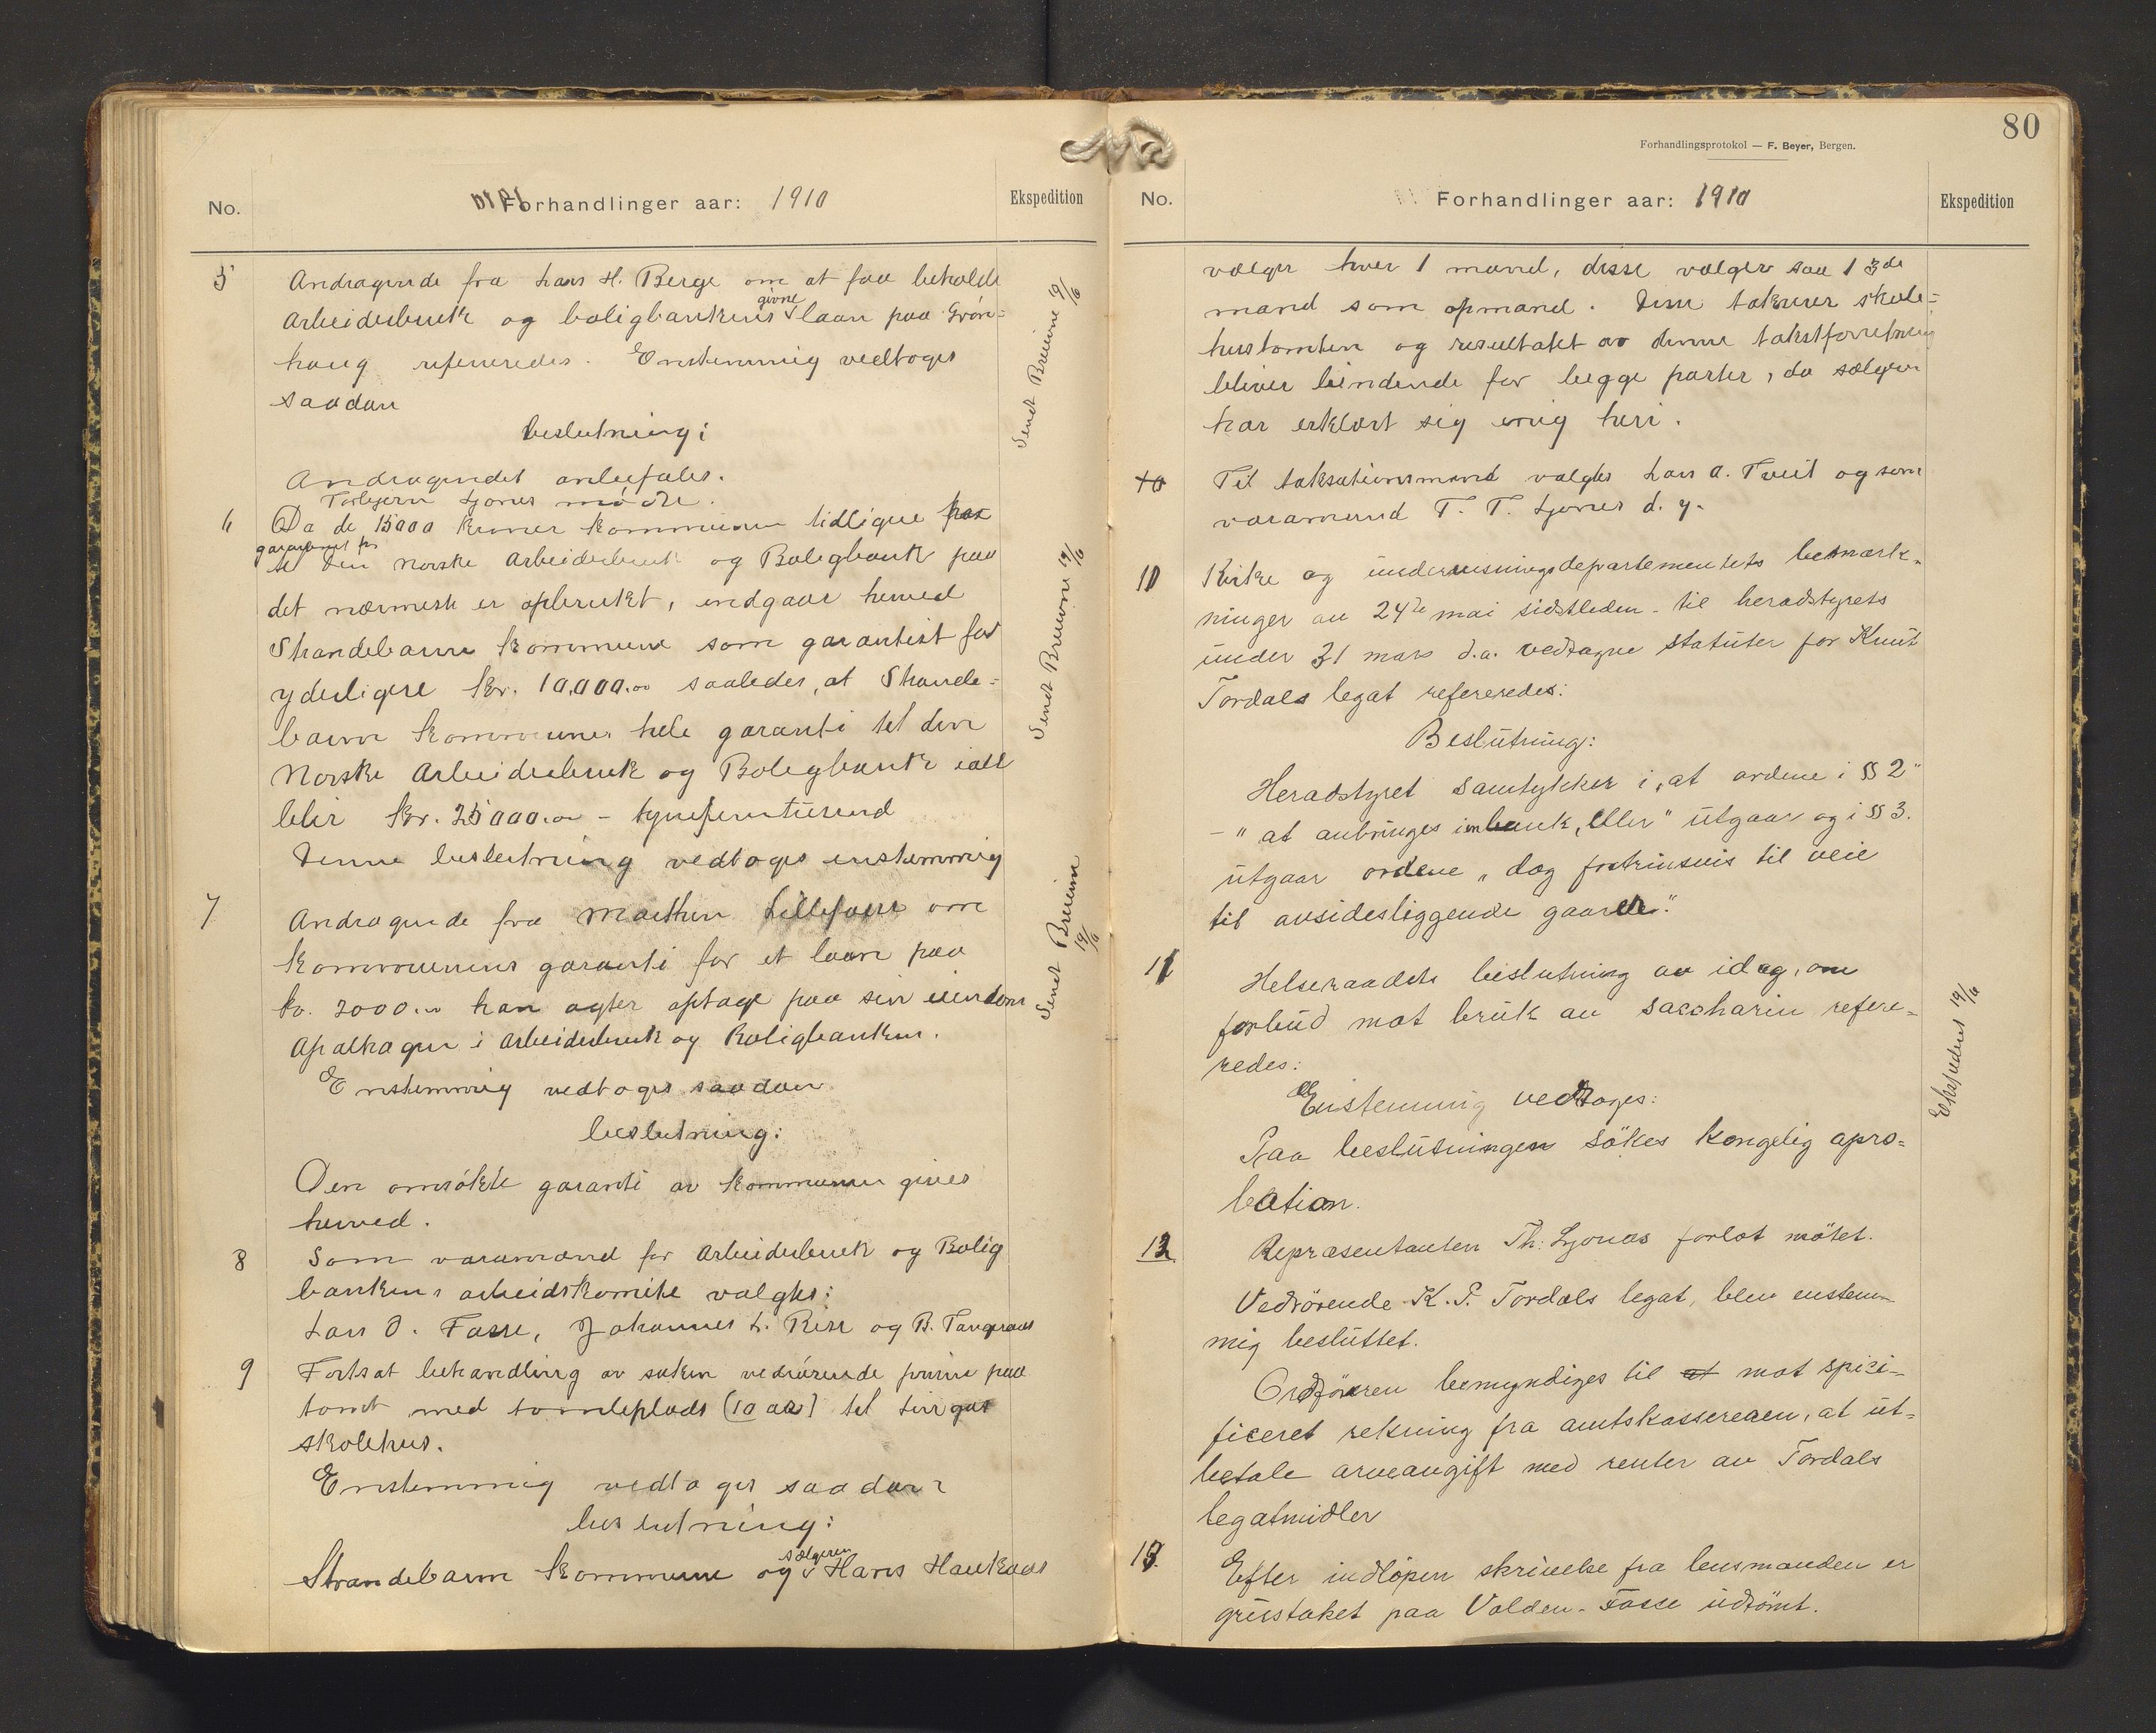 No.
Forhandlinger aar: 1910
Ekspedition
5
Andragende fra Lars H. Berge om at faa beholde
Arbeiderbruk og boligbankens givne laan paa Grøn-
haug refereredes. Enstemmig vedtoges
saadan
beslutning:
Andragendet anbefales.
Torbjørn Ljones mødte.
6
Da de 15000 kroner kommunen tidligere har
garanteret for
til den Norske Arbeiderbruk og Boligbank paa
det nærmeste er opbrukt, indgaar herved
Strandebarm kommune som garantist for
yderligere kr. 10,000.00 saaledes, at Strande-
barm kommunes hele garanti til den
Norske Arbeiderbruk og Boligbank ialt
blir kr. 25000.00 - tyvefemtusend
Denne beslutning vedtoges enstemmig
7
Andragende fra Marthin Lillefosse om
kommunens garanti for et laan paa
kr. 2000.00 han agter optage paa sin eiendom
Apalhagen i Arbeiderbruk og Boligbanken.
Enstemmig vedtoges saadan
beslutning:
Den omsøkte garanti av kommunen gives
herved.
8
Som varamænd for Arbeiderbruk og Bolig
bankens arbeidskomite valgtes:
Lars O. Fosse, Johannes L. Risa og B. Tangeraas
9
Fortsat behandling av saken vedrørende prisen paa
tomt med tomteplads (10 ar) til
skolehus.
Enstemmig vedtoges saadan
beslutning:
Strandebarm kommune og sælgeren Hans Haukaas
Sendt Breivne 19/6
Sendt Breivne 19/6
Sendt Breivne 19/6
80
Forhandlingsprotokol — F. Beyer, Bergen.
No.
Forhandlinger aar: 1910
Ekspedition
vælger hver 1 mand, disse vælger saa 1 3de
mand som opmand. Disse takserer skole-
hustomten og resultatet av denne takstforretning
bliver bindende for begge parter, da sælgeren
har erklært sig enig heri.
10
Til taksationsmand valgtes Lars A. Tveit og som
varamænd T. T. Ljones d. y.
10
Kirke og undervisningsdepartementets bemærk-
ninger av 24de mai sidstleden til heradstyrets
under 31 mars d.a. vedtagne statuter for Knut
Tordals legat refereredes:
Beslutning:
Heradstyret samtykker i, at ordene i §§ 2
- "at anbringes i bank, eller" utgaar og i §§ 3.
utgaar ordene "dog fortrinsvis til veie
til avsidesliggende gaarde".
11
Helseraadets beslutning av idag, om
forbud mot bruk av saccharin refere-
redes:
Enstemmig vedtoges:
Paa beslutningen søkes kongelig apro-
bation.
12
Repræsentanten Th. Ljones forlot møtet.
Vedrørende K. P. Tordals legat, blev enstem-
mig besluttet.
Ordføreren bemyndiges til at mot spesi-
ficeret rekning fra amtskassereren, at ut-
betale arveavgift med renter av Tordals
legatmidler
13
Efter indløpen skrivelse fra lensmanden er
grustaket paa Volden - Fosse utdømt.
Ekspedert 19/6